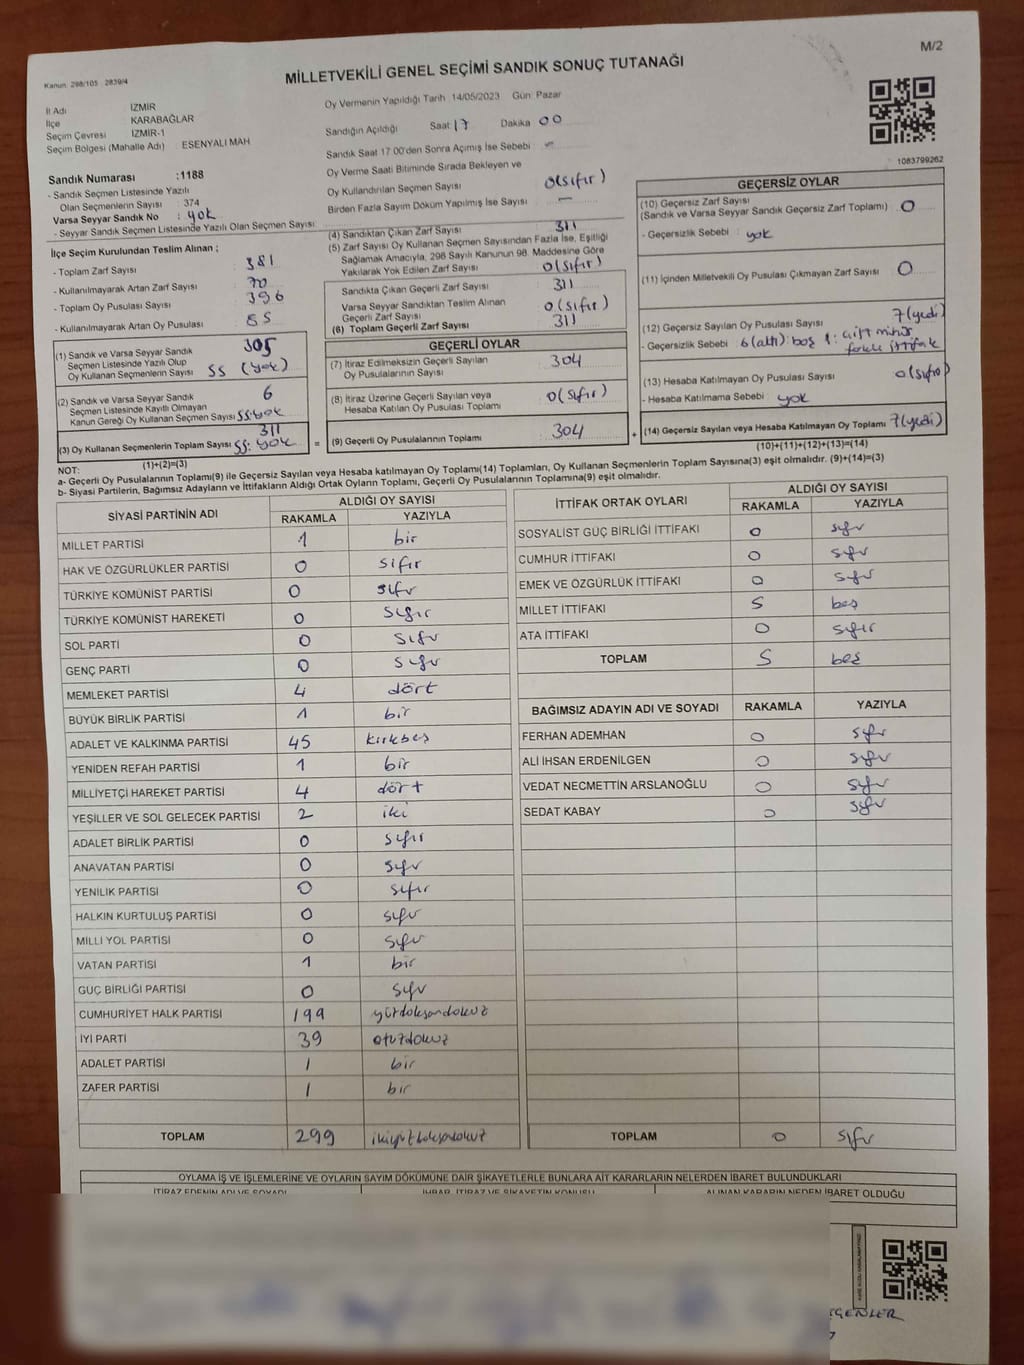 M/2
Kanun: 298/105 2839/4
MİLLETVEKİLİ GENEL SEÇİMİ SANDIK SONUÇ TUTANAĞI
İl Adı İZMİR
İlçe KARABAĞLAR
Seçim Çevresi İZMİR-1
Seçim Bölgesi (Mahalle Adı) ESENYALI MAH
Sandık Numarası :1188
- Sandık Seçmen Listesinde Yazılı
Olan Seçmenlerin Sayısı : 374
Varsa Seyyar Sandık No : yok
- Seyyar Sandık Seçmen Listesinde Yazılı Olan Seçmen Sayısı:
İlçe Seçim Kurulundan Teslim Alınan ;
- Toplam Zarf Sayısı : 381
- Kullanılmayarak Artan Zarf Sayısı : 70
- Toplam Oy Pusulası Sayısı : 396
- Kullanılmayarak Artan Oy Pusulası : 85
(1) Sandık ve Varsa Seyyar Sandık 305
Seçmen Listesinde Yazılı Olup
Oy Kullanan Seçmenlerin Sayısı SS (yok)
(2) Sandık ve Varsa Seyyar Sandık 6
Seçmen Listesinde Kayıtlı Olmayan
Kanun Gereği Oy Kullanan Seçmen Sayısı SS:yok
311
(3) Oy Kullanan Seçmenlerin Toplam Sayısı SS: yok
(1)+(2)=(3)
Oy Vermenin Yapıldığı Tarih 14/05/2023 Gün: Pazar
Sandığın Açıldığı Saat 17 Dakika 00
Sandık Saat 17:00'den Sonra Açımış İse Sebebi -
Oy Verme Saati Bitiminde Sırada Bekleyen ve
Oy Kullandırılan Seçmen Sayısı 0(sıfır)
Birden Fazla Sayım Döküm Yapılmış İse Sayısı -
(4) Sandıktan Çıkan Zarf Sayısı : 311
(5) Zarf Sayısı Oy Kullanan Seçmen Sayısından Fazla İse, Eşitliği
Sağlamak Amacıyla, 298 Sayılı Kanunun 98. Maddesine Göre
Yakılarak Yok Edilen Zarf Sayısı : 0(sıfır)
Sandıkta Çıkan Geçerli Zarf Sayısı : 311
Varsa Seyyar Sandıktan Teslim Alınan
Geçerli Zarf Sayısı : 0(sıfır)
(6) Toplam Geçerli Zarf Sayısı : 311
GEÇERLİ OYLAR
(7) İtiraz Edilmeksizin Geçerli Sayılan
Oy Pusulalarının Sayısı 304
(8) İtiraz Üzerine Geçerli Sayılan veya
Hesaba Katılan Oy Pusulası Toplamı 0(sıfır)
= (9) Geçerli Oy Pusulalarının Toplamı 304 +
1083799262
GEÇERSİZ OYLAR
(10) Geçersiz Zarf Sayısı
(Sandık ve Varsa Seyyar Sandık Geçersiz Zarf Toplamı) : 0
- Geçersizlik Sebebi : yok
(11) İçinden Milletvekili Oy Pusulası Çıkmayan Zarf Sayısı : 0
(12) Geçersiz Sayılan Oy Pusulası Sayısı : 7(yedi)
- Geçersizlik Sebebi : 6(altı):boş 1: çift mühür
farklı ittifak
(13) Hesaba Katılmayan Oy Pusulası Sayısı : 0(sıfır)
- Hesaba Katılmama Sebebi : yok
(14) Geçersiz Sayılan veya Hesaba Katılmayan Oy Toplamı 7(yedi)
(10)+(11)+(12)+(13)=(14)
NOT:
a- Geçerli Oy Pusulalarının Toplamı(9) ile Geçersiz Sayılan veya Hesaba katılmayan Oy Toplamı(14) Toplamları, Oy Kullanan Seçmenlerin Toplam Sayısına(3) eşit olmalıdır. (9)+(14)=(3)
b- Siyasi Partilerin, Bağımsız Adayların ve İttifakların Aldığı Ortak Oyların Toplamı, Geçerli Oy Pusulalarının Toplamına(9) eşit olmalıdır.
SİYASİ PARTİNİN ADI ALDIĞI OY SAYISI
RAKAMLA YAZIYLA
MİLLET PARTİSİ 1 bir
HAK VE ÖZGÜRLÜKLER PARTİSİ 0 sıfır
TÜRKİYE KOMÜNİST PARTİSİ 0 sıfır
TÜRKİYE KOMÜNİST HAREKETİ 0 sıfır
SOL PARTİ 0 sıfır
GENÇ PARTİ 0 sıfır
MEMLEKET PARTİSİ 4 dört
BÜYÜK BİRLİK PARTİSİ 1 bir
ADALET VE KALKINMA PARTİSİ 45 kırkbeş
YENİDEN REFAH PARTİSİ 1 bir
MİLLİYETÇİ HAREKET PARTİSİ 4 dört
YEŞİLLER VE SOL GELECEK PARTİSİ 2 iki
ADALET BİRLİK PARTİSİ 0 sıfır
ANAVATAN PARTİSİ 0 sıfır
YENİLİK PARTİSİ 0 sıfır
HALKIN KURTULUŞ PARTİSİ 0 sıfır
MİLLİ YOL PARTİSİ 0 sıfır
VATAN PARTİSİ 1 bir
GÜÇ BİRLİĞİ PARTİSİ 0 sıfır
CUMHURİYET HALK PARTİSİ 199 yüzdoksandokuz
İYİ PARTİ 39 otuzdokuz
ADALET PARTİSİ 1 bir
ZAFER PARTİSİ 1 bir
TOPLAM 299 ikiyüzdoksandokuz
İTTİFAK ORTAK OYLARI ALDIĞI OY SAYISI
RAKAMLA YAZIYLA
SOSYALİST GÜÇ BİRLİĞİ İTTİFAKI 0 sıfır
CUMHUR İTTİFAKI 0 sıfır
EMEK VE ÖZGÜRLÜK İTTİFAKI 0 sıfır
MİLLET İTTİFAKI 5 beş
ATA İTTİFAKI 0 sıfır
TOPLAM 5 beş
BAĞIMSIZ ADAYIN ADI VE SOYADI RAKAMLA YAZIYLA
FERHAN ADEMHAN 0 sıfır
ALİ İHSAN ERDENİLGEN 0 sıfır
VEDAT NECMETTİN ARSLANOĞLU 0 sıfır
SEDAT KABAY 0 sıfır
TOPLAM 0 sıfır
OYLAMA İŞ VE İŞLEMLERİNE VE OYLARIN SAYIM DÖKÜMÜNE DAİR ŞİKAYETLERLE BUNLARA AİT KARARLARIN NELERDEN İBARET BULUNDUKLARI
İTİRAZ EDENİN ADI VE SOYADI İHBAR, İTİRAZ VE ŞİKAYETİN KONUSU ALINAN KARARIN NEDEN İBARET OLDUĞU